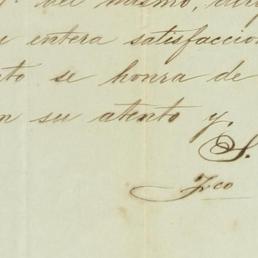 del mismo,
entera satisfaccion
se honra de
su atento y.
S.
Fco